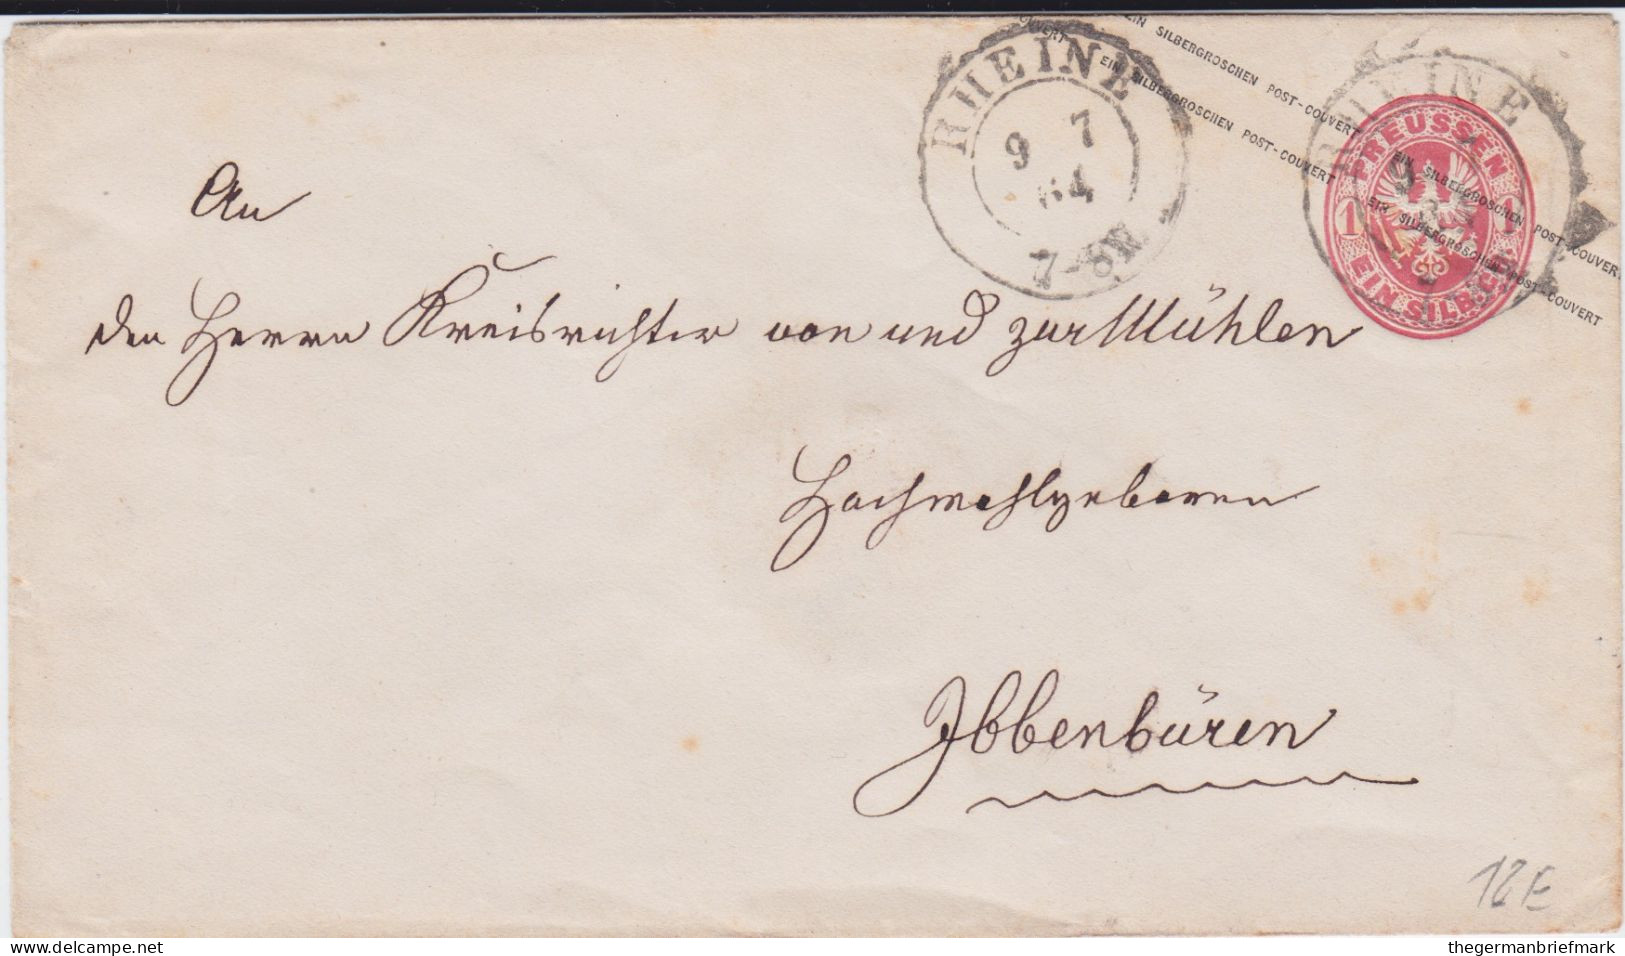 EIN SILBERGROSCHEN POST-COUVERT
UVERT EIN SILBERGROSCHEN POST-COUVERT
EIN SILBERGROSCHEN POST-COUVERT
EIN SILBERGROSCHEN POST-COUVERT
RHEINE
9 7
64
7-8N
RHEINE
9
PREUSSEN
1 1
EIN SILB.GR.
An
den Herrn Kreisrichter von und zur Mühlen
Hochwohlgeboren
Ibbenbüren
12E
www.delcampe.net
thegermanbriefmark